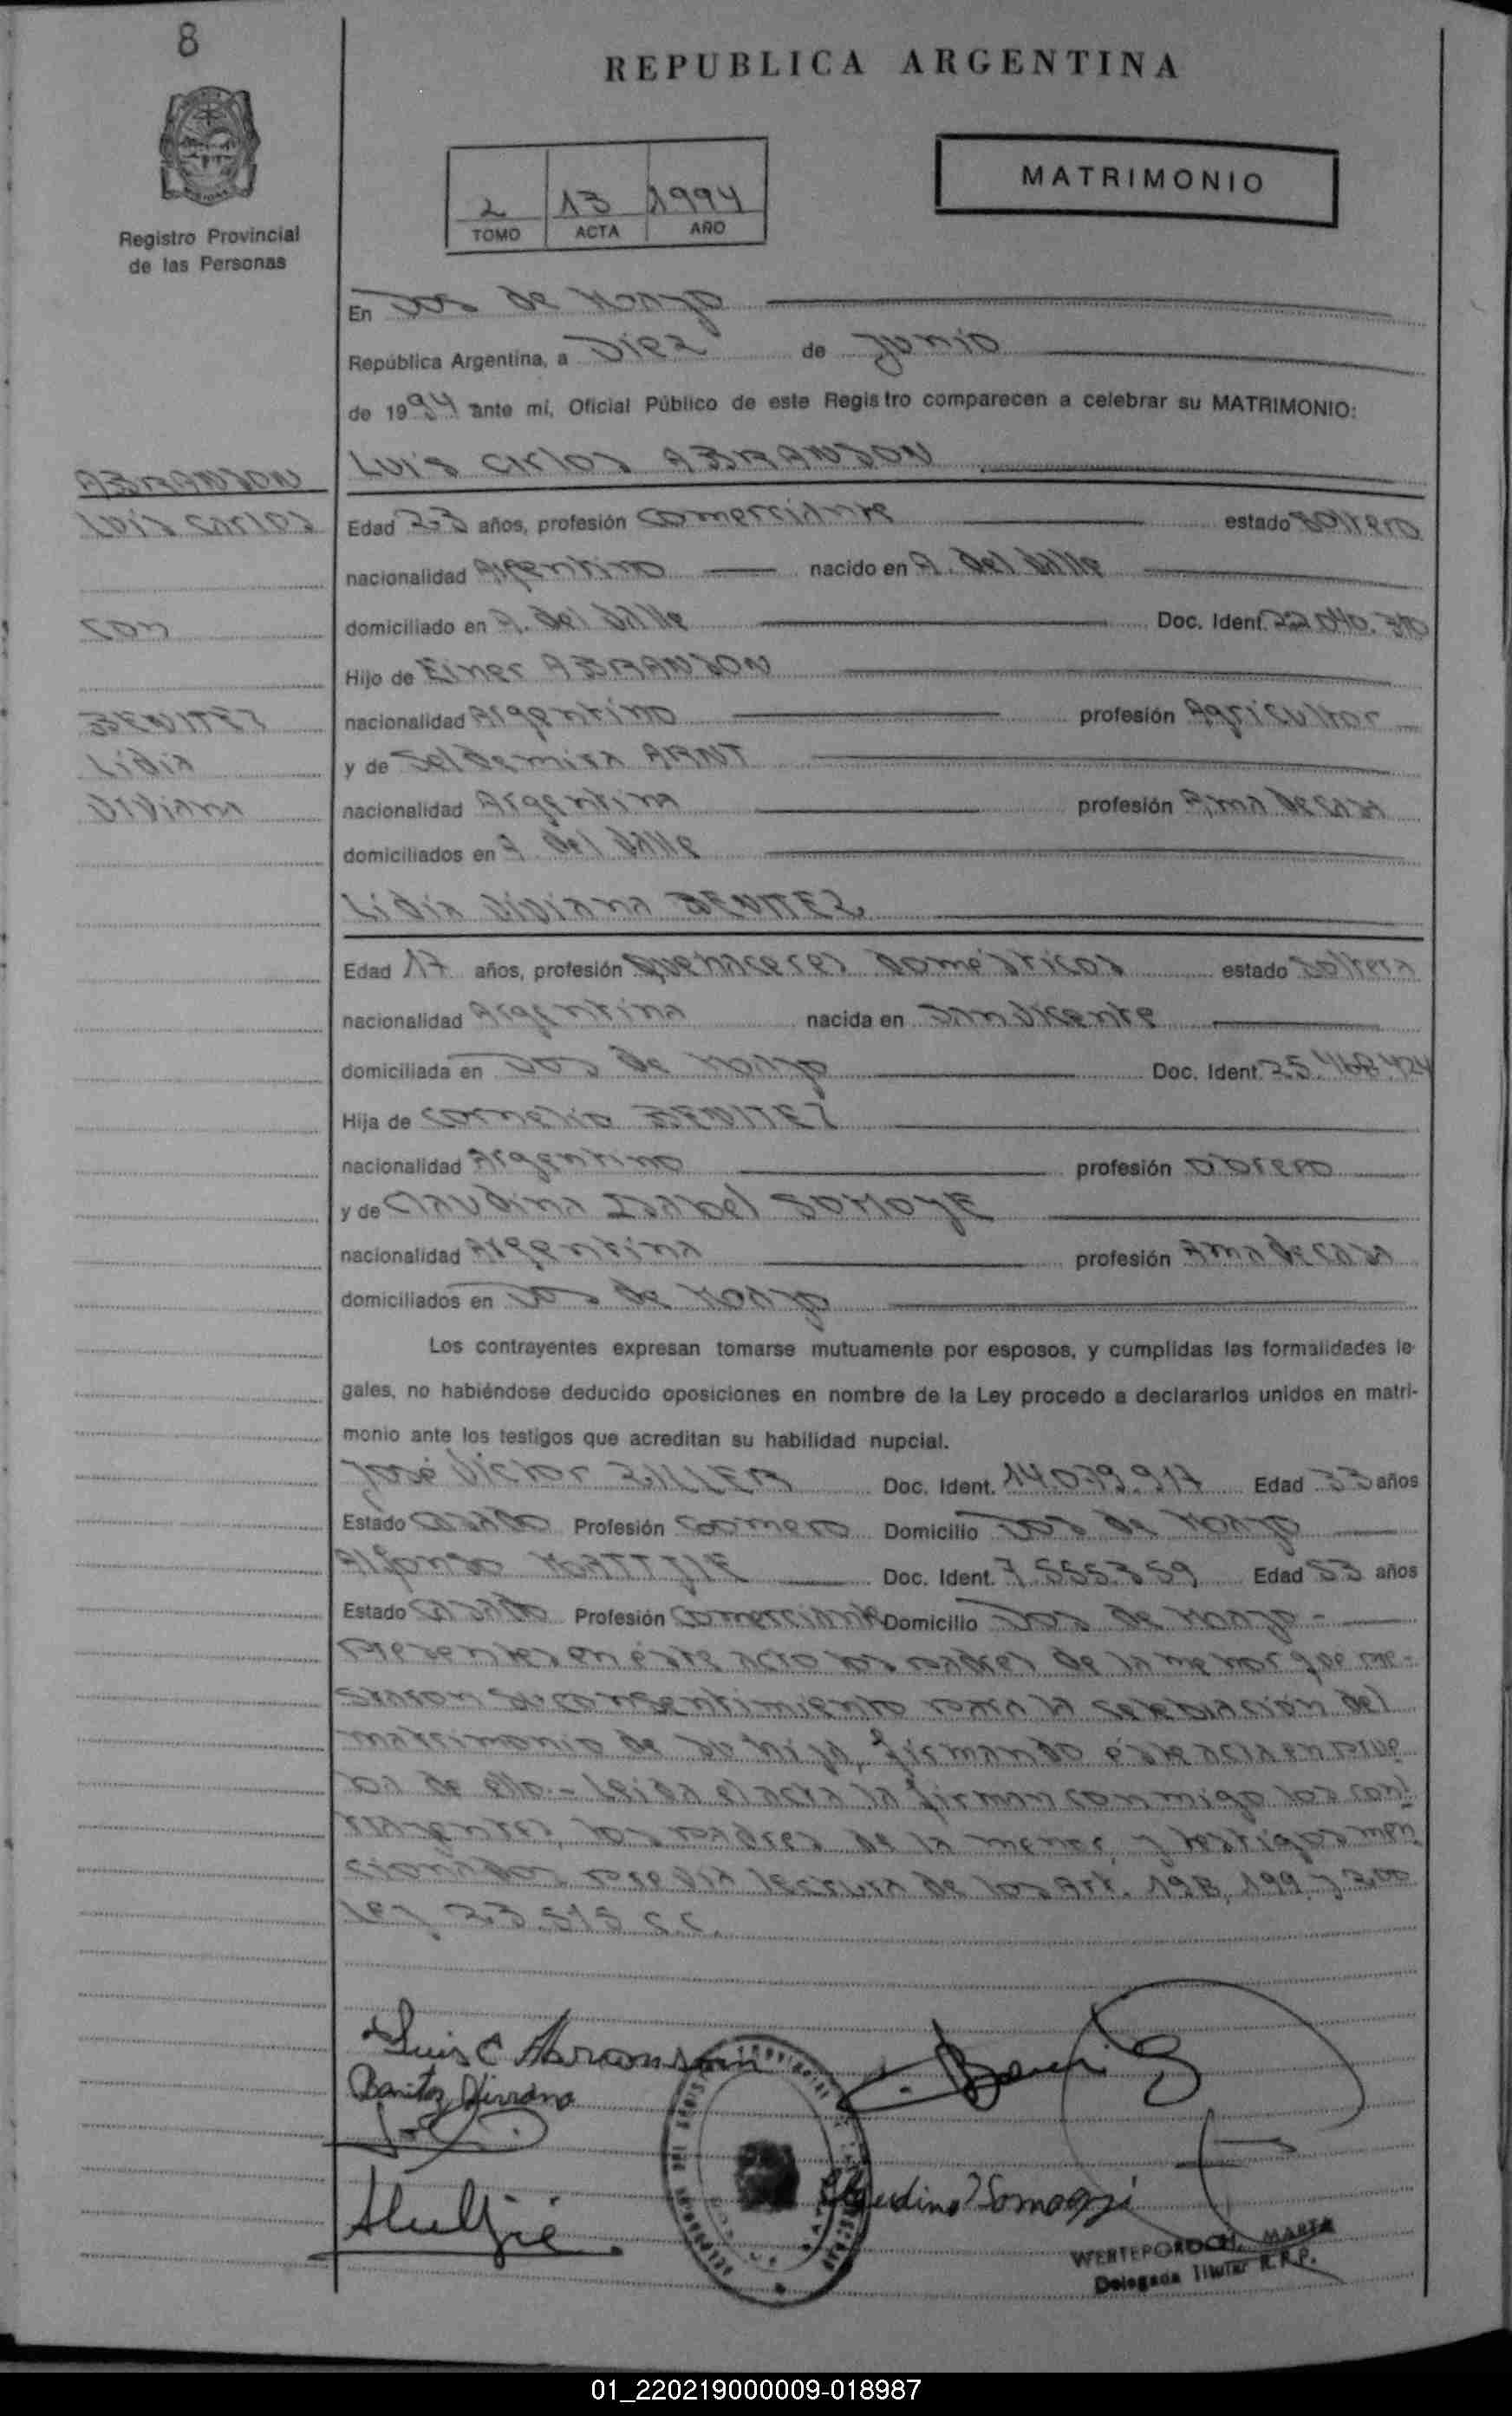 8
REPUBLICA ARGENTINA
MATRIMONIO
2 13 1994
TOMO ACTA AÑO
Registro Provincial
de las Personas
En Dos de Mayo
República Argentina, a Diez de Junio
de 1994 ante mí, Oficial Público de este Registro comparecen a celebrar su MATRIMONIO:
ABRANSON
Luis Carlos
con
BENITEZ
Lidia
Viviana
Luis Carlos ABRANSON
Edad 23 años, profesión comerciante estado soltero
nacionalidad Argentino nacido en A. del Valle
domiciliado en A. del Valle Doc. Ident. 22.040.310
Hijo de Einer ABRANSON
nacionalidad Argentino profesión Agricultor
y de Seldemira ARNT
nacionalidad Argentina profesión Ama de casa
domiciliados en A. del Valle
Lidia Viviana BENITEZ
Edad 17 años, profesión Quehaceres domésticos estado soltera
nacionalidad Argentina nacida en San Vicente
domiciliada en Dos de Mayo Doc. Ident. 25.468.424
Hija de Cornelio BENITEZ
nacionalidad Argentino profesión obrero
y de Claudina Isabel SOMOYE
nacionalidad Argentina profesión Ama de casa
domiciliados en Dos de Mayo
Los contrayentes expresan tomarse mutuamente por esposos, y cumplidas las formalidades le-
gales, no habiéndose deducido oposiciones en nombre de la Ley procedo a declararlos unidos en matri-
monio ante los testigos que acreditan su habilidad nupcial.
José Victor ZILLER Doc. Ident. 14.079.917 Edad 33 años
Estado casado Profesión Domicilio Dos de Mayo
Alfonso MATTJIE Doc. Ident. 7.555.359 Edad 53 años
Estado casado Profesión comerciante Domicilio Dos de Mayo -
Presentes en éste acto los padres de la menor que pre-
staron su consentimiento para la celebración del
matrimonio de su hija, firmando éste acta en prue
ba de ello.- Leída el acta la firman conmigo los con-
trayentes, los padres de la menor, y testigos men
cionados previa lectura de los Art. 198, 199 y 200
Ley 23.515 C.C.
Luis C Abranson
Benitez Viviana
Claudina Somoye
WERTEPOROCH, MARTA
Delegada Titular R.P.P.
01_220219000009-018987